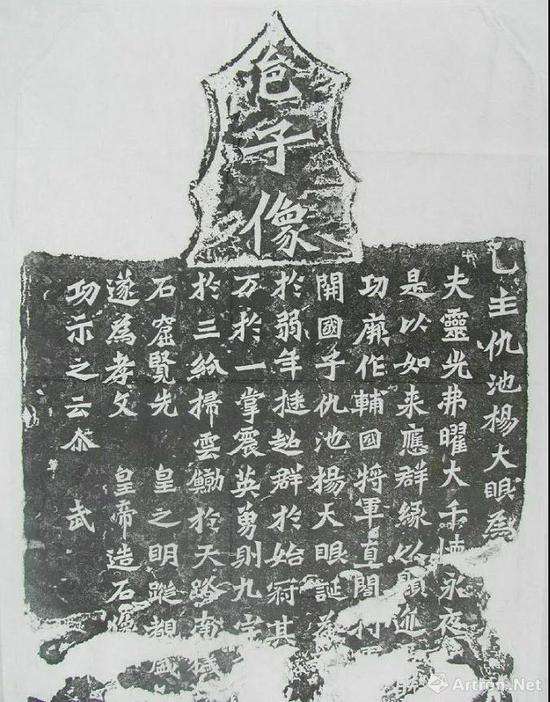 邑子像
邑主仇池楊大眼為
夫靈光弗曜大千懷永夜
是以如来應群縁以顯迹
功厥作輔國將軍直閤將
開國子仇池楊大眼誕承
於弱年挺超群於始冠其
万於一掌震英勇則九宇
於三紛掃雲鯨於天路南穢
石窟覽先 皇之明蹤覩盛
遂為孝文 皇帝造石像
功示之云尒 武
Artron.Net